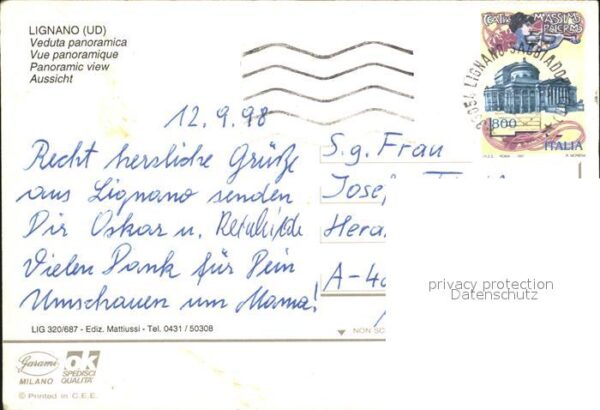 LIGNANO (UD)
Veduta panoramica
Vue panoramique
Panoramic view
Aussicht
12.9.98
Recht herzliche Grüße
aus Lignano senden
Dir Oskar u.
Vielen Dank für Dein
Umschauen um Mama!
LIG 320/687 - Ediz. Mattiussi - Tel. 0431 / 50308
Garami
MILANO
ok
SPEDISCI
QUALITÀ
© Printed in C.E.E.
TEATRO MASSIMO
PALERMO
LIGNANO SABBIADORO
800
ITALIA
S.g. Frau
Josef
Hera
A-40
NON SC
privacy protection
Datenschutz